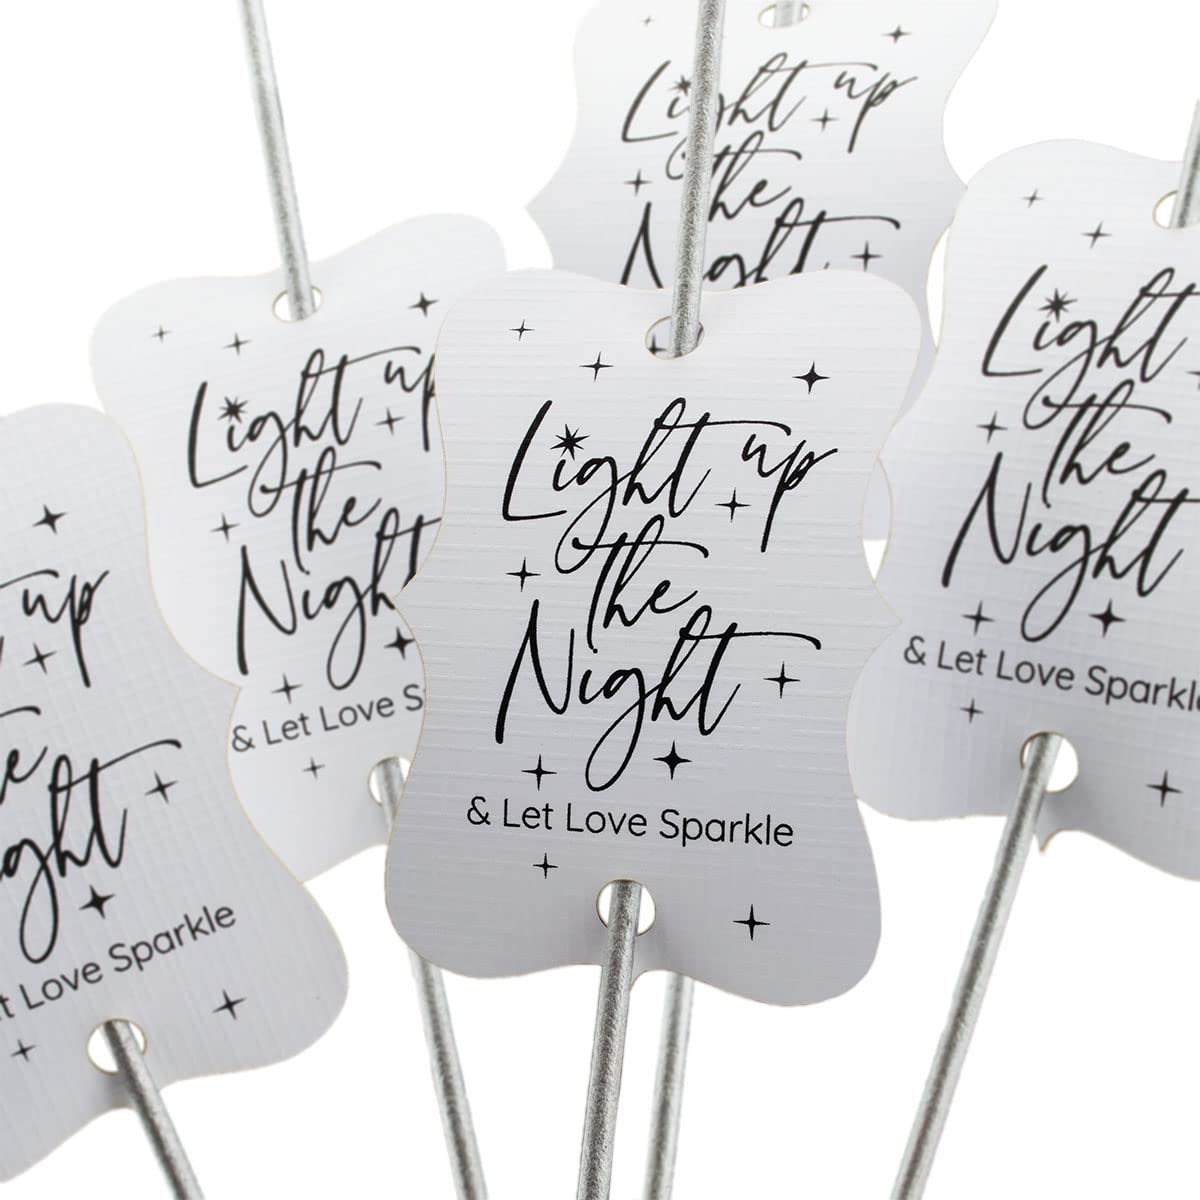 Light up
the
Night
Light up
the
Night
& Let Love S
Light up
the
Night
& Let Love Sparkle
Light
the
Night
& Let Love Sparkle
up
ght
Love Sparkle